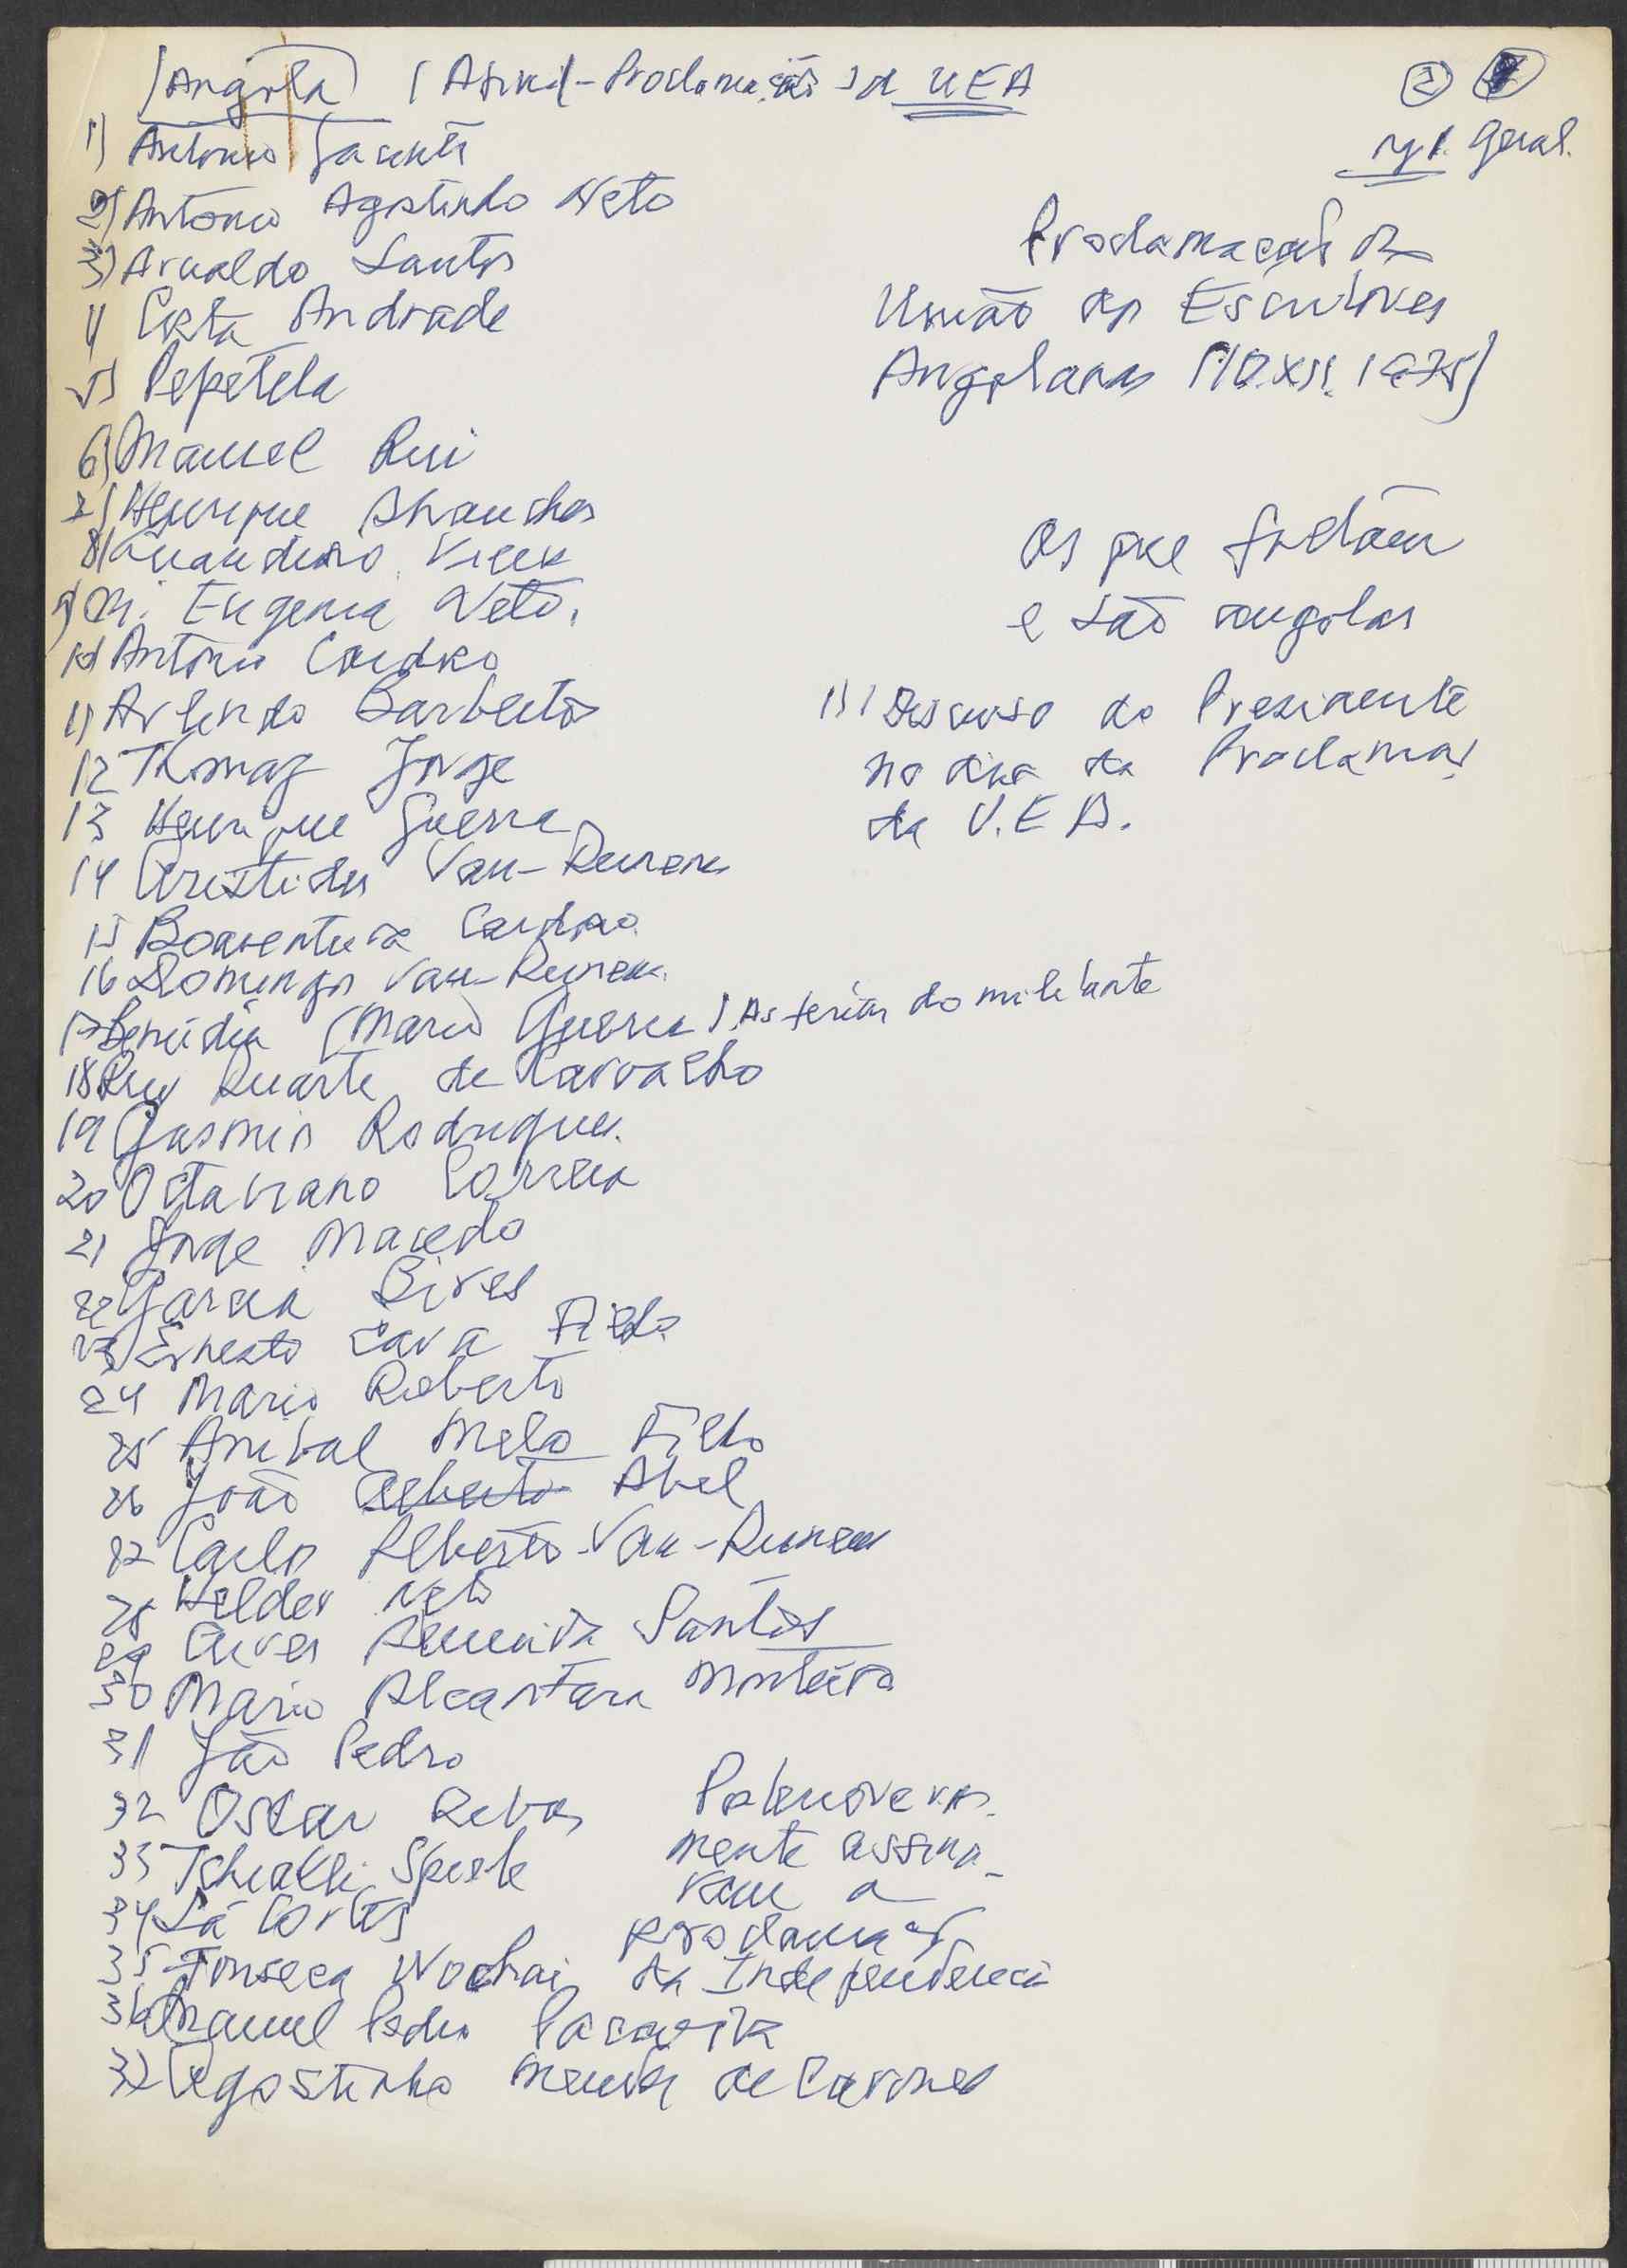 (Angola) (Assinal-Proclamação da UEA
② 
nº 1. Geral.
1) António Jacinto
2) António Agostinho Neto
3) Arnaldo Santos
4 Costa Andrade
5) Pepetela
6) Manuel Rui
7) Henrique Abranches
8) Luandino Vieira
9) M. Eugenia Neto.
10 António Cardoso
11) Arlindo Barbeitos
12 Thomaz Jorge
13 Henrique Guerra
14 Aristides Van-Dunem
15 Boaventura Cardoso
16 Domingos Van-Dunem
17 Benúdia (Mario Guerra). As férias do militante
18 Ruy Duarte de Carvalho
19 Gasmin Rodrigues.
20 Octaviano Correia
21 Jorge Macedo
22 Garcia Bires
23 Ernesto Lara Filho
24 Mario Roberto
25 Anibal Melo Filho
26 João Alberto Abel
27 Carlos Alberto Van-Dunem
28 Helder Neto
29 Aires Almeida Santos
30 Mario Alcantara Monteiro
31 João Pedro
32 Oscar Ribas
33 Tchiakli Spiele
34 Sá Cortes
35 Fonseca Wochai
36 Manuel Pedro Pacavira
37 Agostinho Mendes de Carvalho
Proclamação da
União dos Escritores
Angolanos (10.XII.1975)
Os que faltam
e são angolas
1) 1 Discurso do Presidente
no dia da Proclamaç
da U.E.A.
mente assina-
ram a
proclamaç
da Independencia